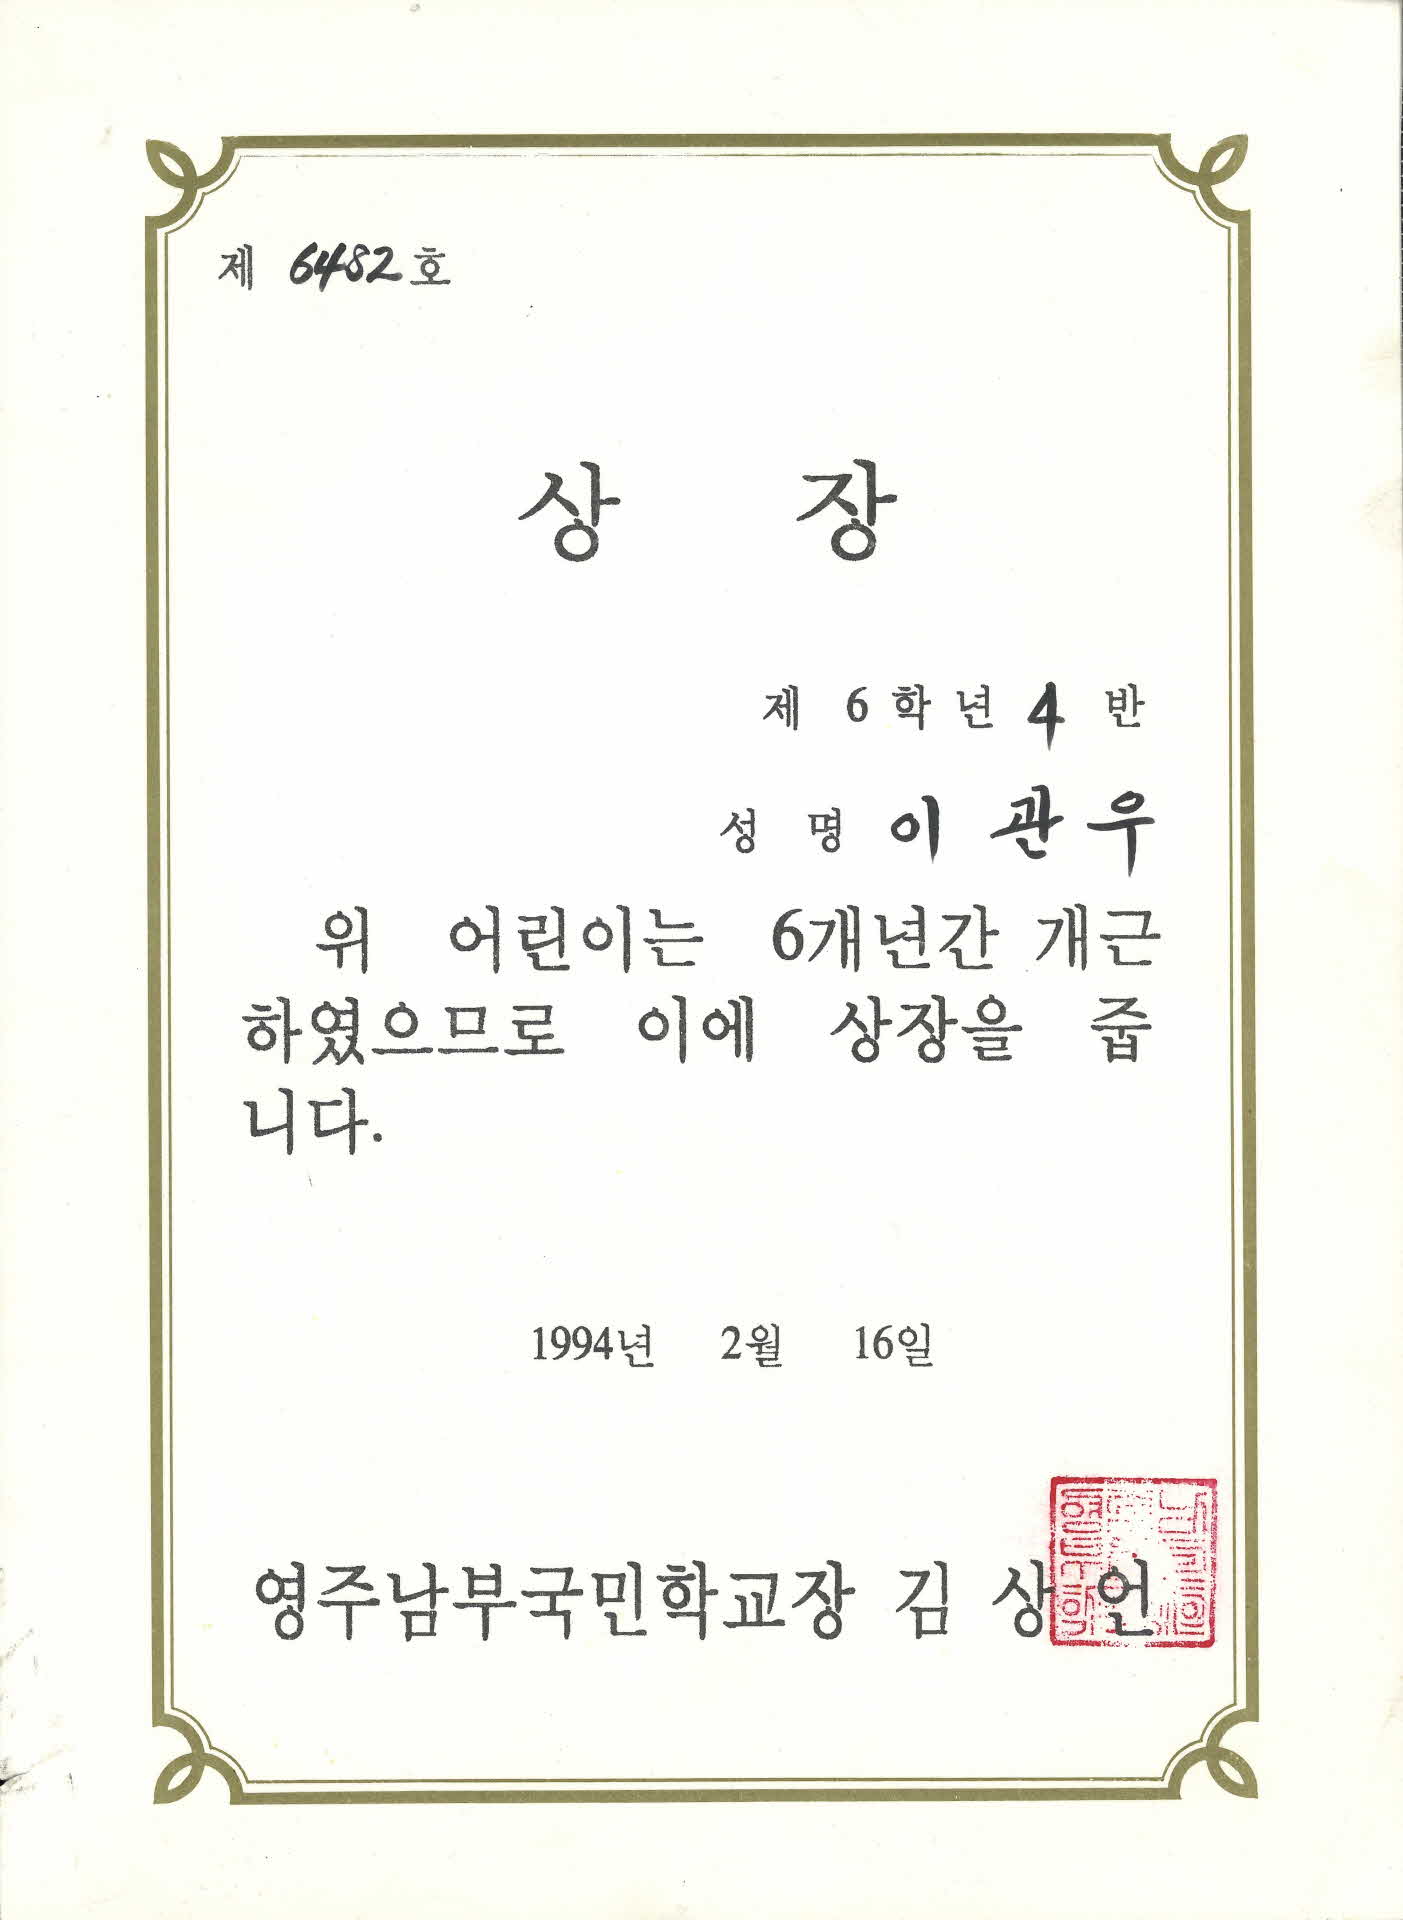 제 6482호
상 장
제 6학년 4 반
성 명 이 관 우
위 어린이는 6개년간 개근
하였으므로 이에 상장을 줍
니다.
1994년 2월 16일
영주남부국민학교장 김 상 언